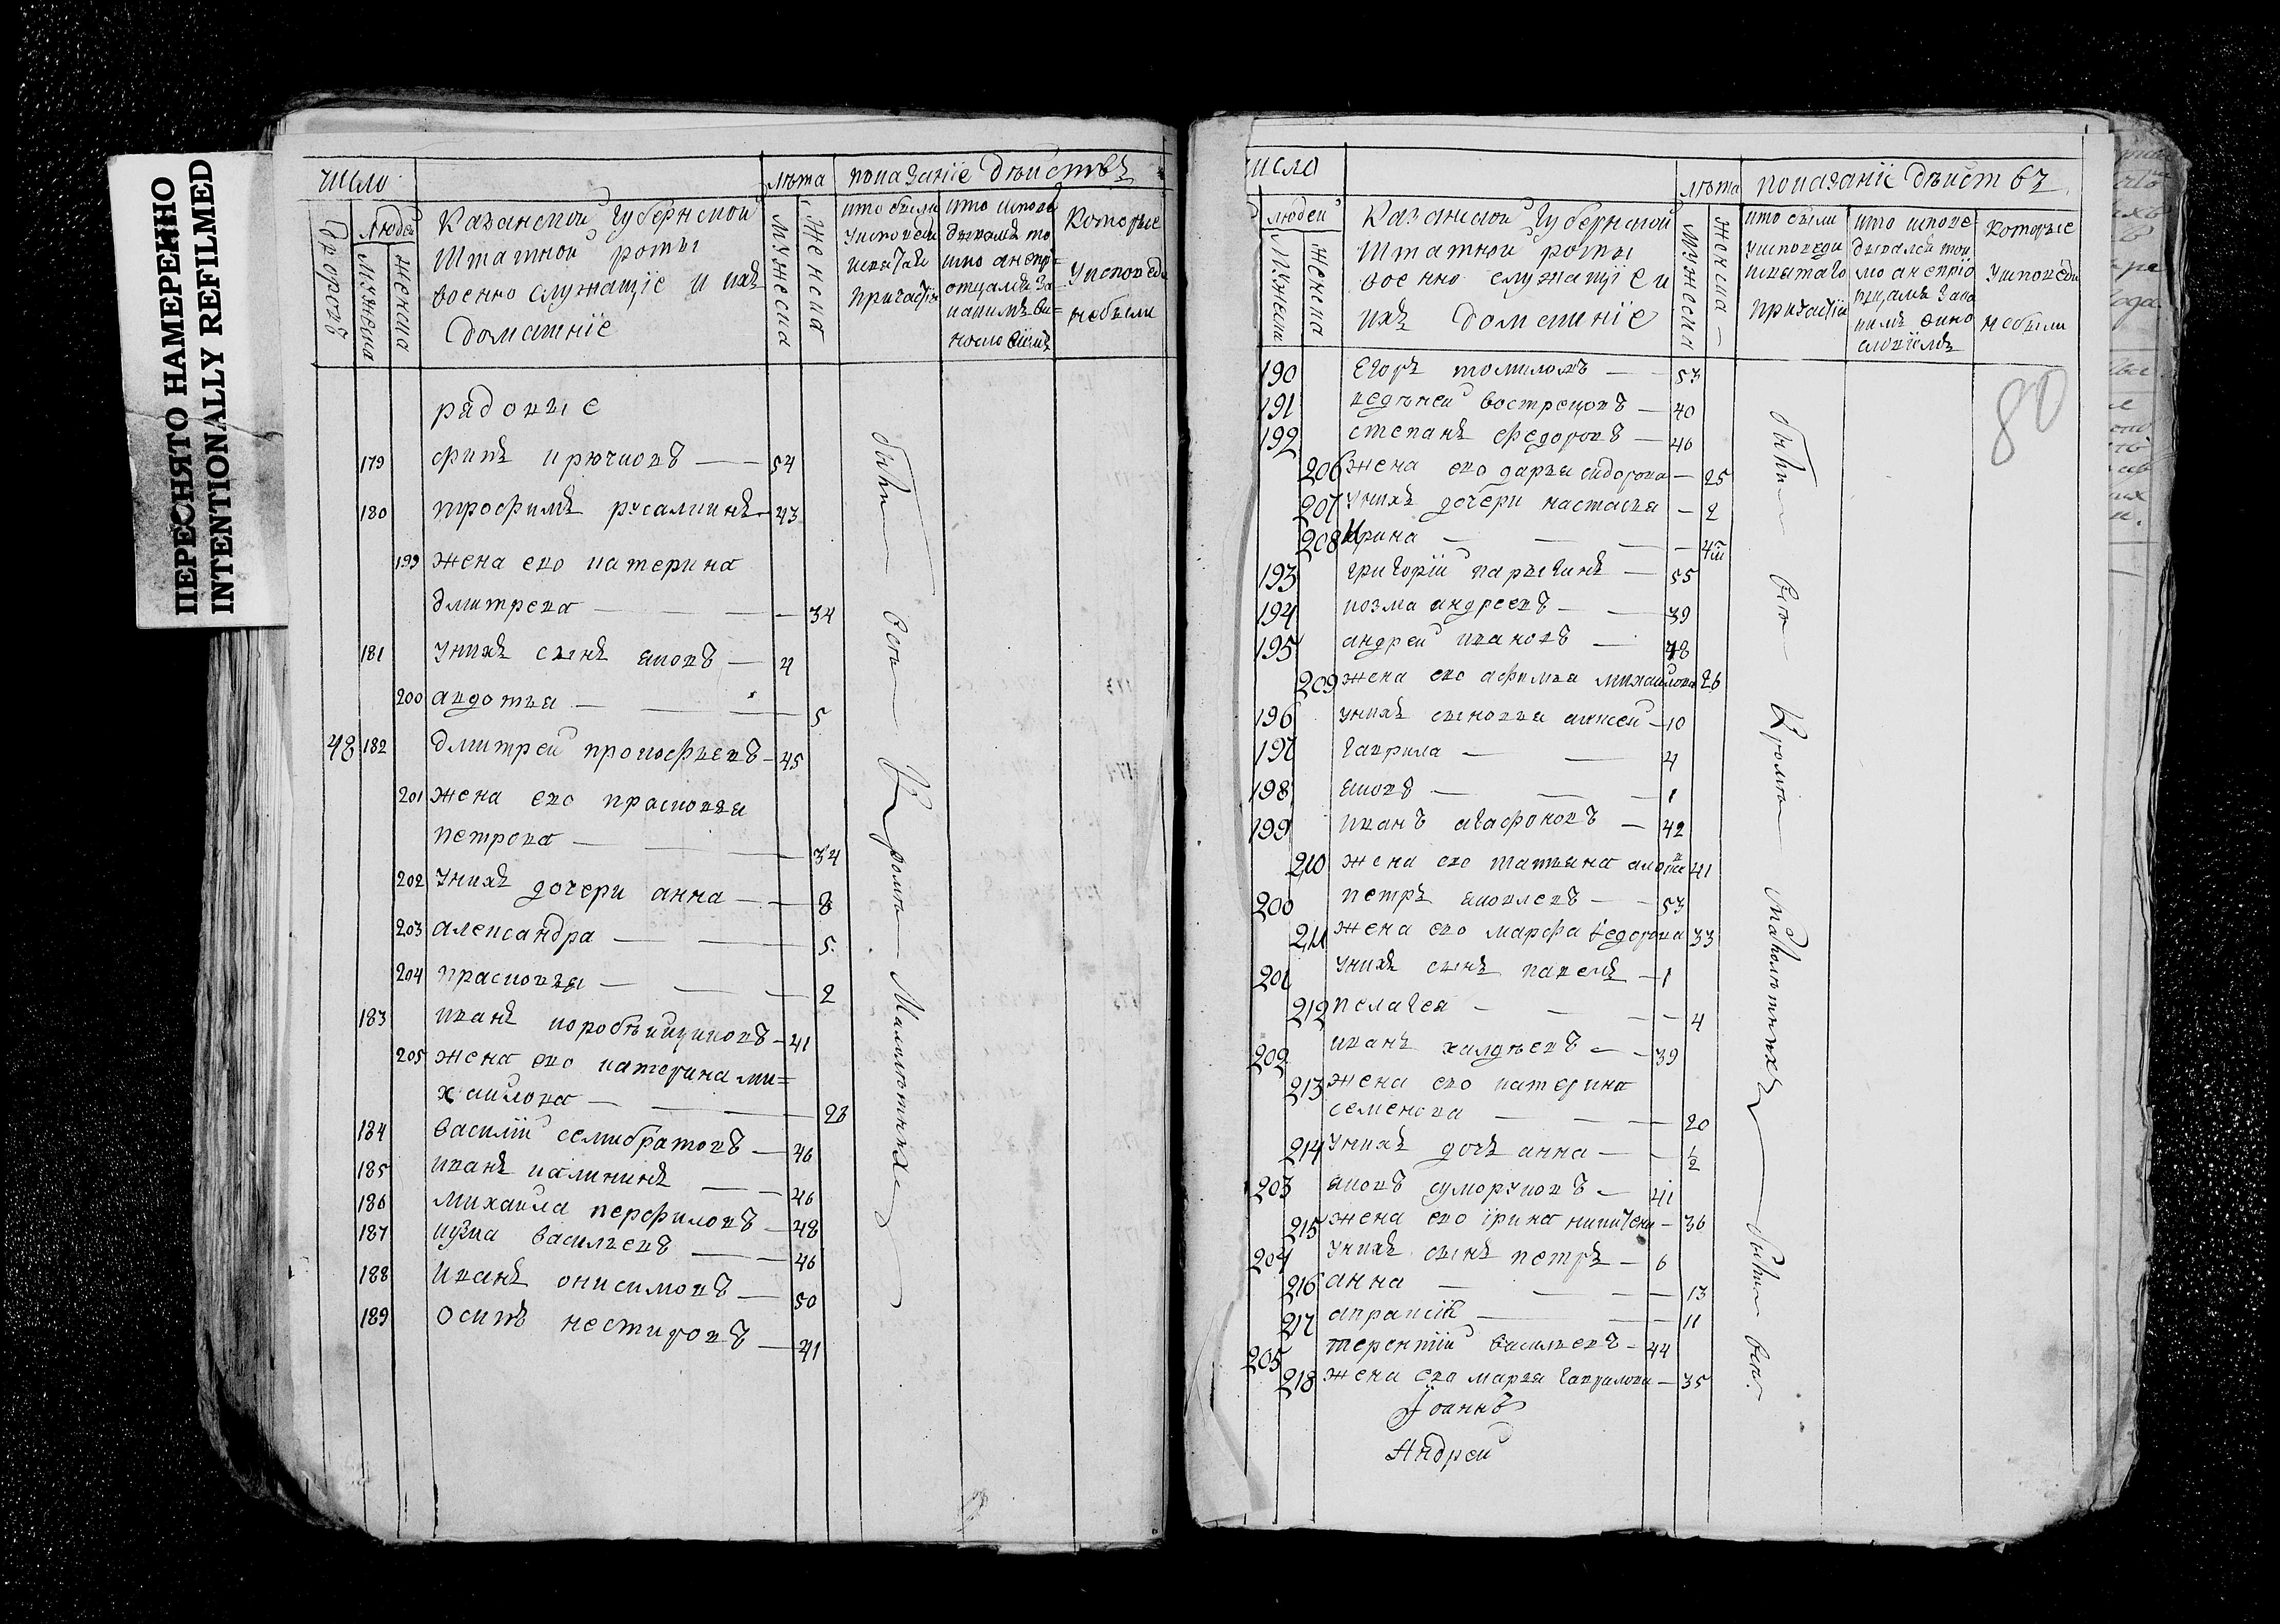 ПЕРЕСНЯТО НАМЕРЕННО
INTENTIONALLY REFILMED
число
лѣта
показанїе дѣйствъ
дворовъ
людей
мужеска
женска
Казанской губернской
штатной роты
военно служащїе и ихъ
домашнїе
мужеска
женска
кто были
уисповеди
исвятаго
причастїя
кто испове
дывался то
кмо анепрї
отцамъ за
какимъ ви=
нословїемъ
Которые
уисповеди
небыли
рядовые
179 фипъ крючковъ 54
180 трофимъ русалкинъ 43
199 жена ево катерина
дмитрева 34
181 унихъ сынъ яковъ 4
200 авдотья 5
48 182 дмитрей прокофьевъ 45
201 жена ево прасковья
петрова 34
202 унихъ дочери анна 8
203 александра 5
204 прасковья 2
183 иванъ коробѣищиковъ 41
205 жена ево катерина ми=
хаилова 28
184 василїй семибратовъ 46
185 иванъ калининъ 46
186 михаила перфиловъ 48
187 кузма васильевъ 46
188 Иванъ онисимовъ 50
189 осипъ нестировъ 41
были всѣ Кромѣ Малолѣтныхъ
число
лѣта
показанїе дѣйствъ
людей
мужеска
женска
Казанской губернской
штатной роты
военно служащїе и
ихъ домашнїе
мужеска
женска
кто были
уисповеди
исвятаго
причастїя
кто испове
дывался ток
мо анепрїо
отцамъ зака
кимъ вино
словїемъ
которые
уисповеди
небыли
80
190 Егоръ томиловъ 53
191 ведѣней вострецовъ 40
192 степанъ федоровъ 46
206 жена ево дарья сидорова 25
207 унихъ дочери настасья 2
208 Ирина
193 григорїй парыгинъ 55
194 козма андреевъ 39
195 андрей ивановъ 48
209 жена ево афимья михаилова 26
196 унихъ сыновья алексей 10
197 гаврила 4
198 яковъ 1
199 иванъ агафоновъ 42
210 жена ево татьяна 41
200 петръ яковлевъ 53
211 жена ево марфа федорова 33
201 унихъ сынъ павелъ 1
212 пелагея 4
202 иванъ халдѣевъ 39
213 жена ево катерина
семенова 20
214 унихъ дочь анна 1/2
203 яковъ сумороковъ 41
215 жена ево їрина никитена 36
204 унихъ сынъ петръ 6
216 анна 13
217 апраксїя 11
205 терентїй васильевъ 44
218 жена ево марья гаврилова 35
Їоаннъ
Андрей
были всѣ Кромѣ Малолѣтныхъ были всѣ